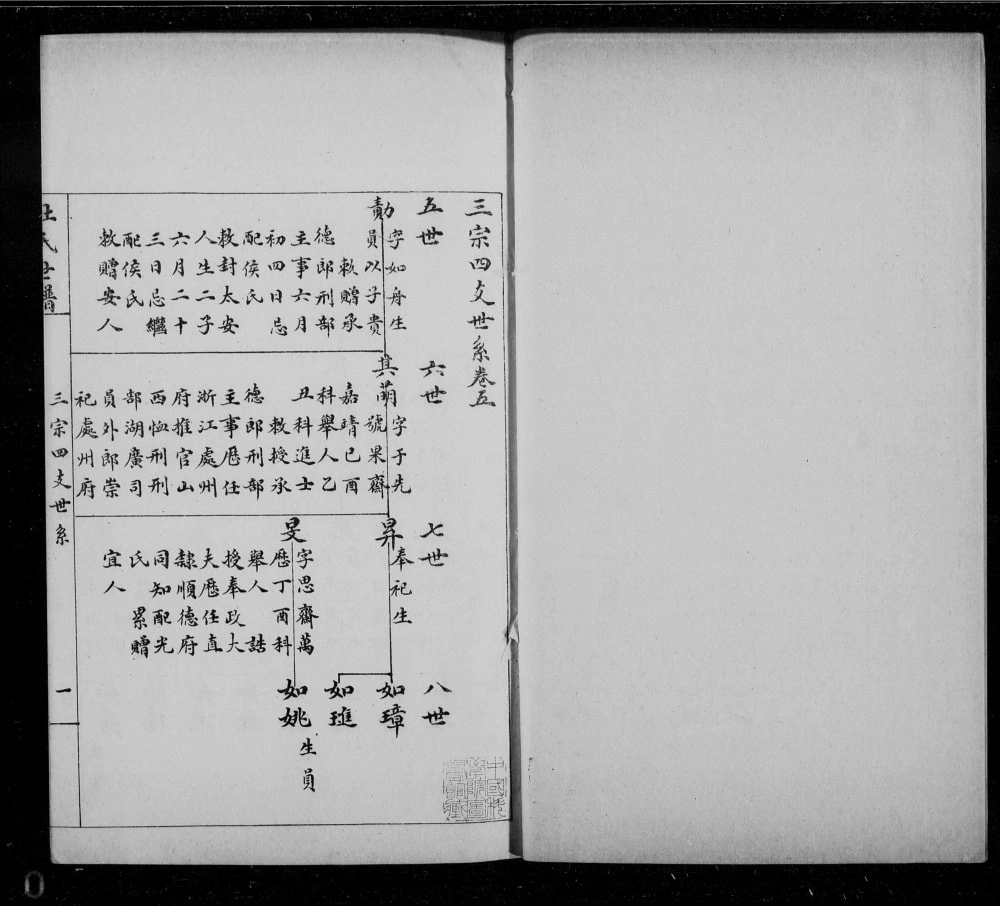 三宗四支世系卷五
五世
勣
字如舟生
員以子貴
敕贈承
德郎刑部
主事六月
初四日忌
配侯氏
敕封太安
人生二子
六月二十
三日忌繼
配侯氏
敕贈安人
六世
其萌
字子先
號果齋
嘉靖己酉
科舉人乙
丑科進士
敕授承
德郎刑部
主事歷任
浙江處州
府推官山
西恤刑刑
部湖廣司
員外郎崇
祀處州府
七世
昇
奉祀生
旻
字思齋萬
歷丁酉科
舉人誥
授奉政大
夫歷任直
隸順德府
同知配光
氏 累贈
宜人
八世
如璋
如璡
如姚
生員
杜氏世譜
三宗四支世系
一
中國科
學院圖
書館藏